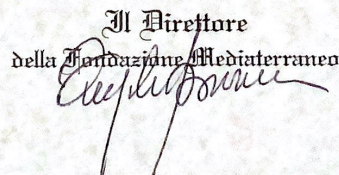 Il Direttore
della Fondazione Mediaterraneo